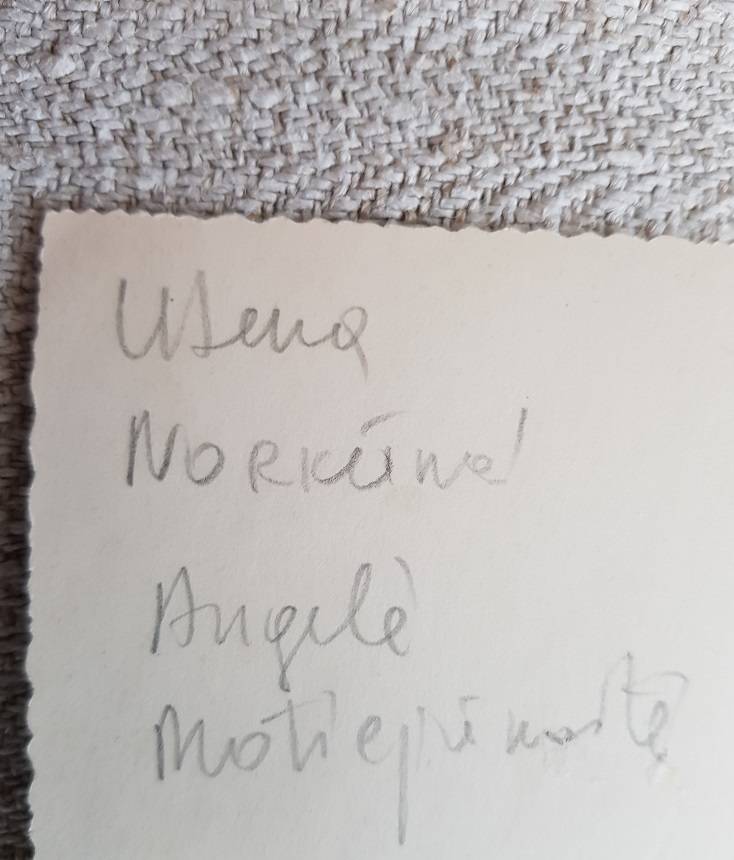 Utena
Norkūnė
Angelė
Motiejūnaitė